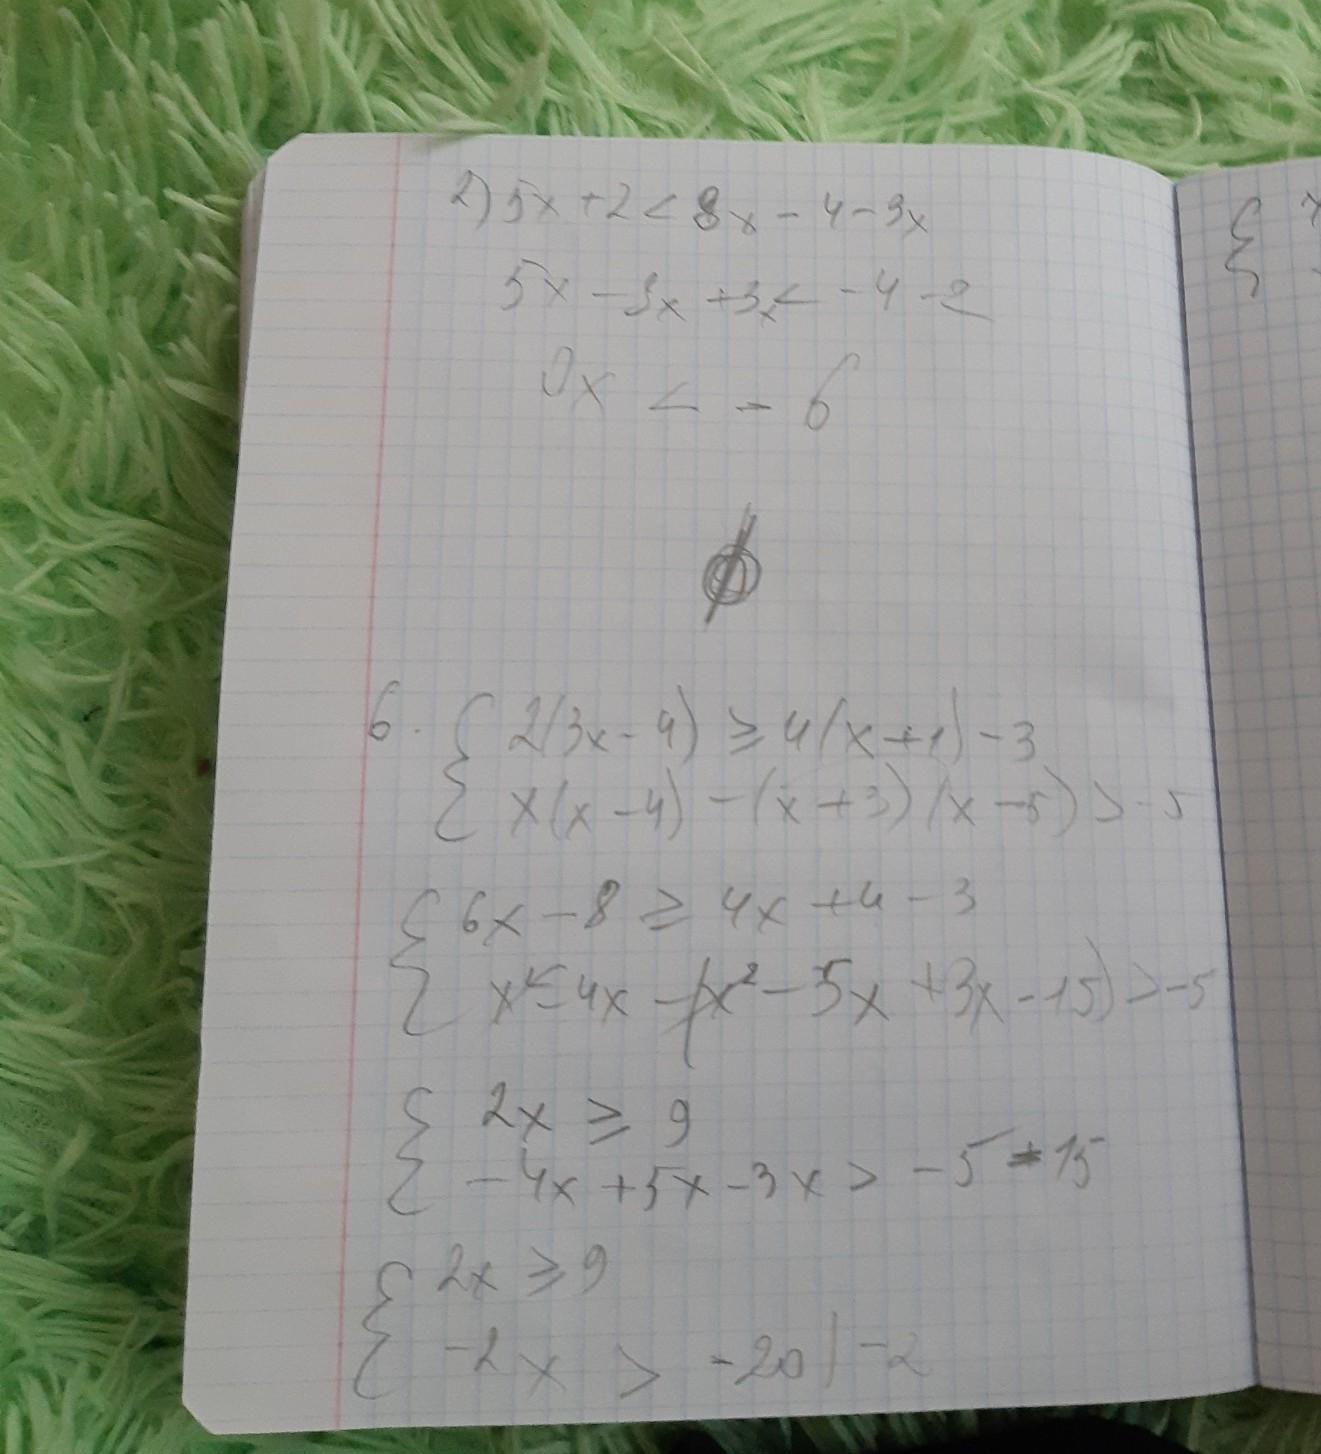 2) 5x + 2 < 8x - 4 - 3x
5x - 8x + 3x < - 4 - 2
0x < - 6
∅
6. { 2(3x - 4) ≥ 4(x + 1) - 3
x(x - 4) - (x + 3)(x - 5) > -5
{ 6x - 8 ≥ 4x + 4 - 3
x² - 4x - (x² - 5x + 3x - 15) > -5
{ 2x ≥ 9
- 4x + 5x - 3x > - 5 - 15
{ 2x ≥ 9
-2x > -20 | -2